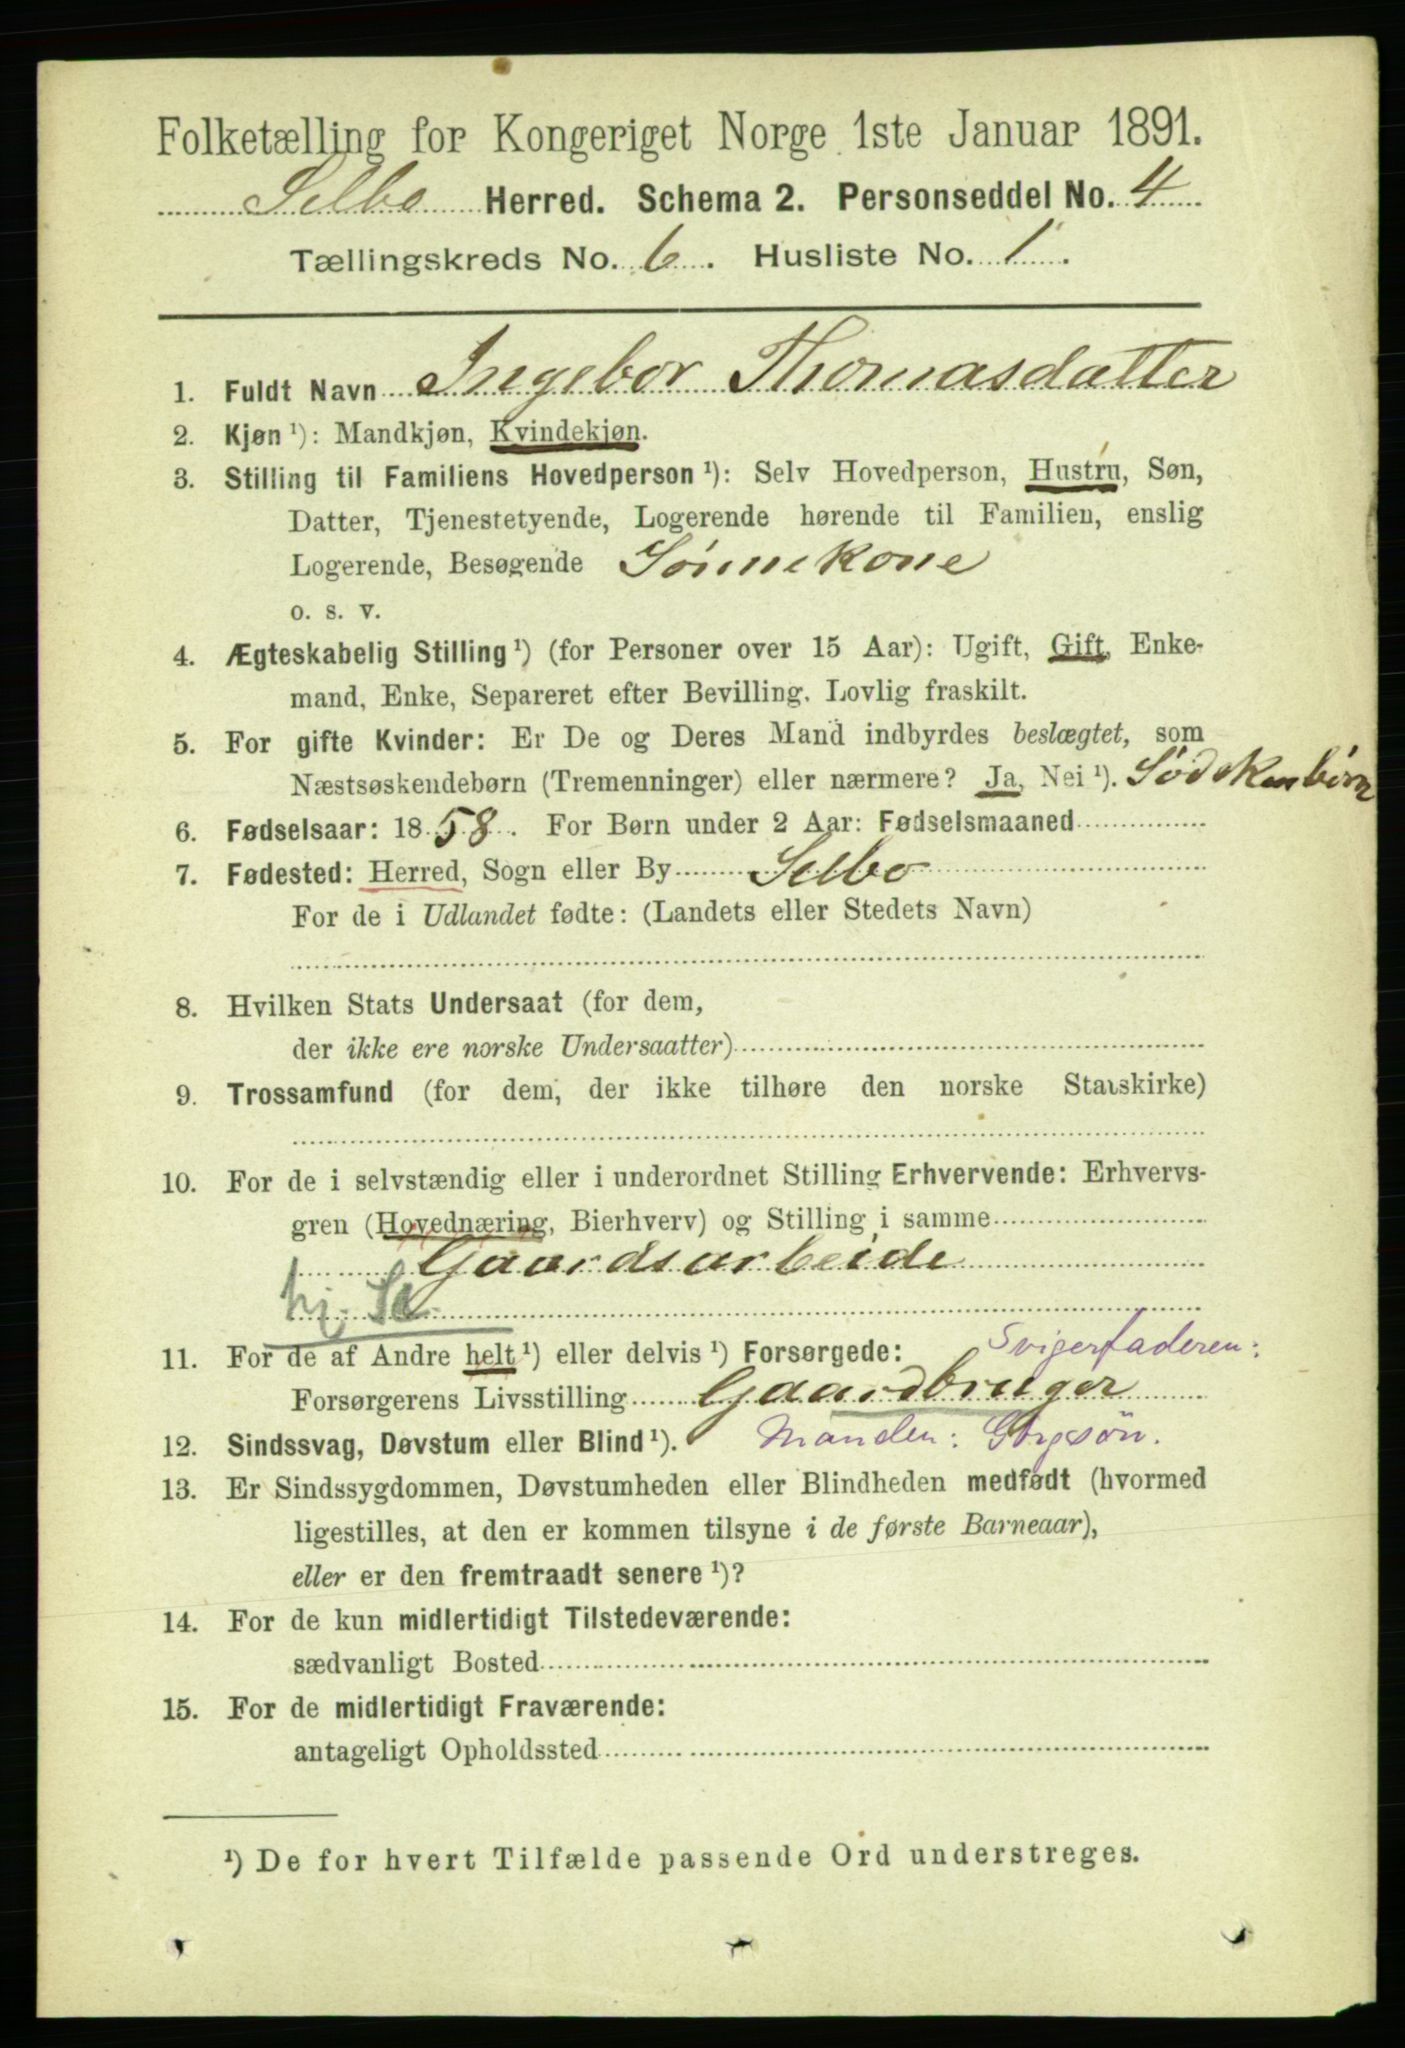 Folketælling for Kongeriget Norge 1ste Januar 1891.
Selbo Herred. Schema 2. Personseddel No. 4
Tællingskreds No. 6. Husliste No. 1.
1. Fuldt Navn Ingebor Thomasdatter
2. Kjøn ¹): Mandkjøn, Kvindekjøn.
3. Stilling til Familiens Hovedperson ¹): Selv Hovedperson, Hustru, Søn,
Datter, Tjenestetyende, Logerende hørende til Familien, enslig
Logerende, Besøgende Sønnekone
o. s. v.
4. Ægteskabelig Stilling ¹) (for Personer over 15 Aar): Ugift, Gift, Enke-
mand, Enke, Separeret efter Bevilling. Lovlig fraskilt.
5. For gifte Kvinder: Er De og Deres Mand indbyrdes beslægtet, som
Næstsøskendebørn (Tremenninger) eller nærmere? Ja, Nei ¹). Sødskenbörn
6. Fødselsaar: 1858. For Børn under 2 Aar: Fødselsmaaned
7. Fødested: Herred, Sogn eller By Selbo
For de i Udlandet fødte: (Landets eller Stedets Navn)
8. Hvilken Stats Undersaat (for dem,
der ikke ere norske Undersaatter)
9. Trossamfund (for dem, der ikke tilhøre den norske Statskirke)
10. For de i selvstændig eller i underordnet Stilling Erhvervende: Erhvervs-
gren (Hovednæring, Bierhverv) og Stilling i samme
Gaardsarbeide
hj.
11. For de af Andre helt ¹) eller delvis ¹) Forsørgede: Svigerfaderen:
Forsørgerens Livsstilling Gaardbruger
12. Sindssvag, Døvstum eller Blind ¹). Manden:
13. Er Sindssygdommen, Døvstumheden eller Blindheden medfødt (hvormed
ligestilles, at den er kommen tilsyne i de første Barneaar),
eller er den fremtraadt senere ¹)?
14. For de kun midlertidigt Tilstedeværende:
sædvanligt Bosted
15. For de midlertidigt Fraværende:
antageligt Opholdssted
¹) De for hvert Tilfælde passende Ord understreges.